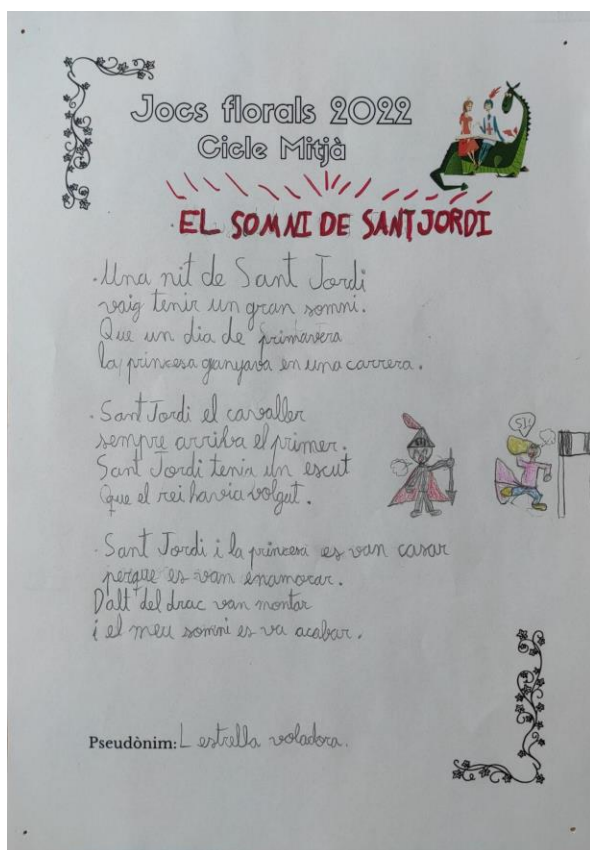 Jocs florals 2022
Cicle Mitjà
EL SOMNI DE SANT JORDI
.Una nit de Sant Jordi
vaig tenir un gran somni.
Que un dia de primavera
la princesa ganyava en una carrera.
.Sant Jordi el cavaller
sempre arriba el primer.
Sant Jordi tenia un escut
Que el rei havia volgut.
SÍ!
.Sant Jordi i la princesa es van casar
perque es van enamorar.
Dalt del drac van montar
i el meu somni es va acabar.
Pseudònim: L estrella voladora.